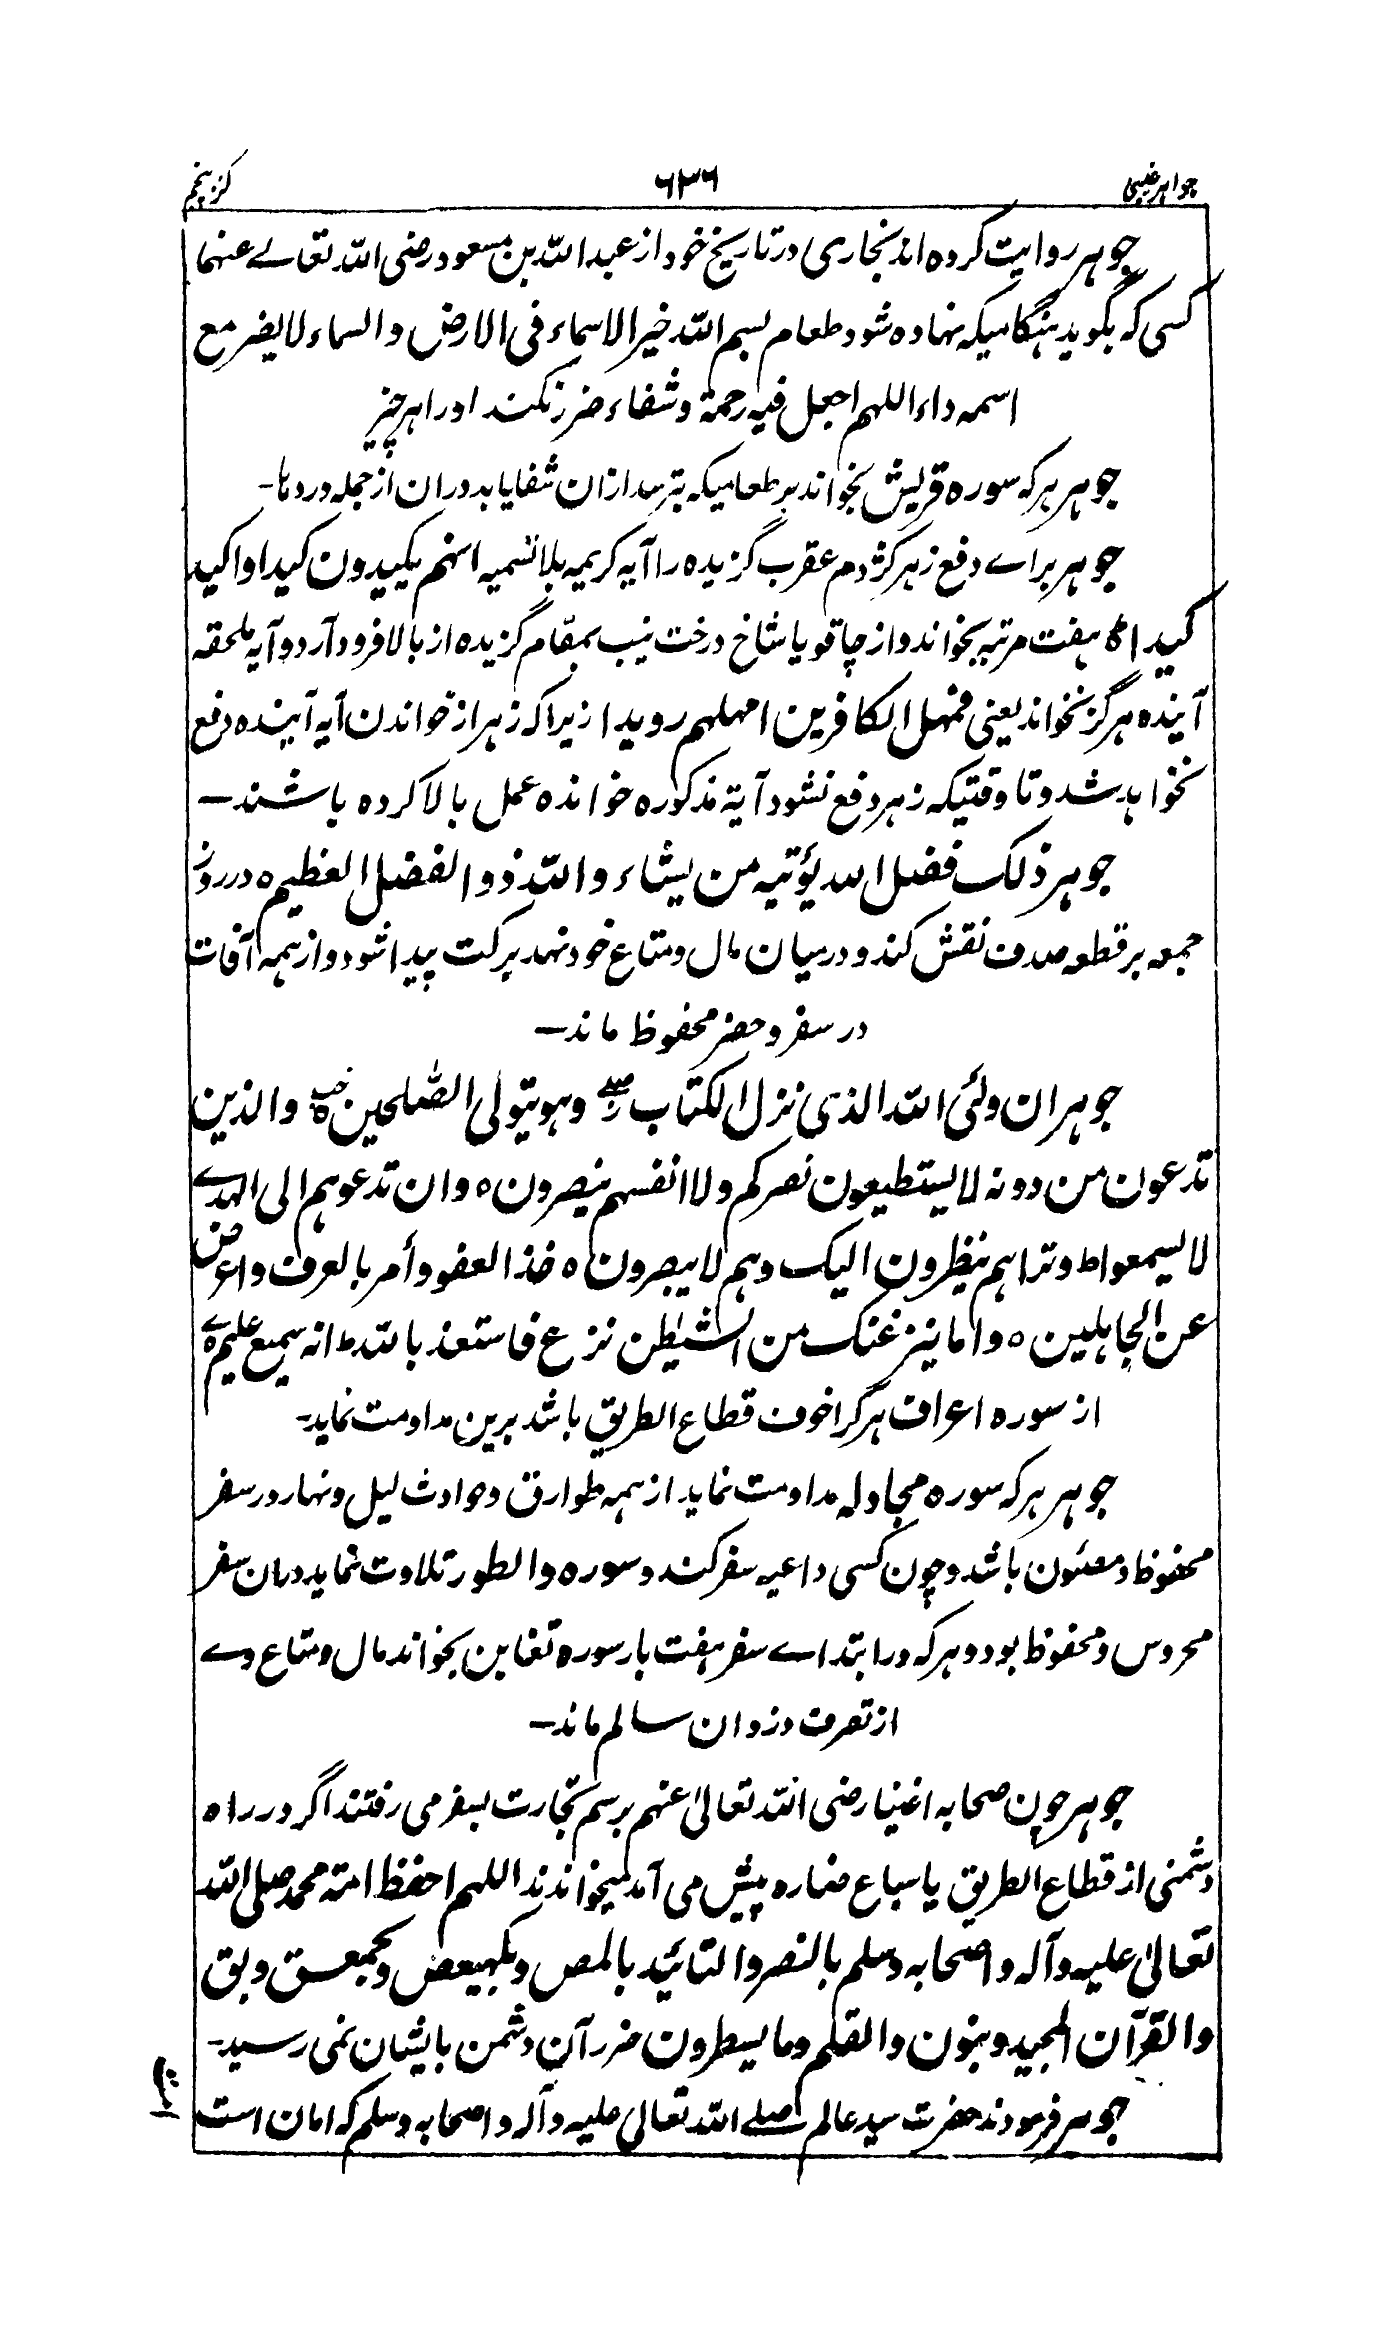 جواہر غیبی ۶۳۶ کنز پنجم
جوہر روایت کردہ اند بخاری در تاریخ خود از عبد اللہ بن مسعود رضی اللہ تعالے عنہما
کسی کہ بگوید ہنگامیکہ نہادہ شود طعام بسم اللہ خیر الاسماء فی الارض والسماء لا یضر مع
اسمہ داء اللہم اجعل فیہ رحمۃ وشفاء ضرر نکند اورا ہر چیز
جوہر ہر کہ سورہ قریش بخواند بر طعامیکہ بترسد ازان شفا یابد دران از جملہ دردہا۔
جوہر براے دفع زہر کژدم عقرب گزیدہ را آیہ کریمہ بلا تسمیہ انہم یکیدون کیدا واکید
کیدا ہ ہفت مرتبہ بخواند و از چاقو یا شاخ درخت نیب بمقام گزیدہ از بالا فرود آرد و آیہ ملحقہ
آیندہ ہرگز نخواند یعنی فمہل الکافرین امہلہم رویدا زیرا کہ زہر از خواندن آیہ آیندہ دفع
نخواہد شد و تا وقتیکہ زہر دفع نشود آیۃ مذکورہ خواندہ عمل بالا کردہ باشند—
جوہر ذلک فضل اللہ یؤتیہ من یشاء واللہ ذوالفضل العظیم ہ در روز
جمعہ بر قطعہ صدف نقش کند و درمیان مال و متاع خود نہد برکت پیدا شود و از ہمہ آفات
در سفر و حضر محفوظ ماند—
جوہر ان ولئی اللہ الذی نزل الکتاب صلے وہو یتولی الصّٰلحین ہ والذین
تدعون من دونہ لا یستطیعون نصرکم ولا انفسہم ینصرون ہ وان تدعوہم الی الہدے
لا یسمعوا ط وتراہم ینظرون الیک وہم لا یبصرون ہ خذ العفو وأمر بالعرف واعرض
عن الجاہلین ہ واما ینزغنک من الشیٰطن نزغ فاستعذ باللہ ط انہ سمیع علیم ہ
از سورہ اعراف ہر کرا خوف قطاع الطریق باشد برین مداومت نماید۔
جوہر ہر کہ سورہ مجادلہ مداومت نماید از ہمہ طوارق و حوادث لیل و نہار در سفر
محفوظ و مصئون باشد و چون کسی داعیہ سفر کند و سورہ والطور تلاوت نماید دران سفر
محروس و محفوظ بود و ہر کہ در ابتداے سفر ہفت بار سورہ تغابن بخواند مال و متاع وے
از تصرف دزدان سالم ماند—
جوہر چون صحابہ اغنیا رضی اللہ تعالیٰ عنہم برسم تجارت بسفر می رفتند اگر در راہ
دشمنی از قطاع الطریق یا سباع ضارہ پیش می آمد میخواندند اللہم احفظ امۃ محمد صلی اللہ
تعالیٰ علیہ وآلہ واصحابہ وسلم بالنصر والتائید بالمص وبکہیعص وبحمعسق وبق
والقرآن المجید وبنون والقلم وما یسطرون ضرر آن دشمن بایشان نمی رسید۔
جوہر فرمودند حضرت سید عالم صلے اللہ تعالی علیہ وآلہ واصحابہ وسلم کہ امان است